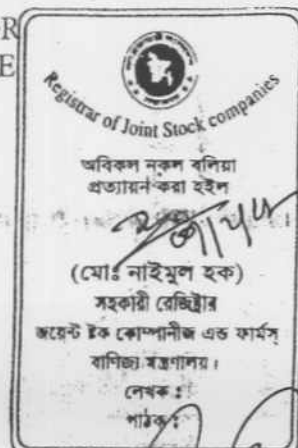 OR
E
Registrar of Joint Stock companies
অবিকল নকল বলিয়া
প্রত্যায়ন করা হইল
(মোঃ নাইমুল হক)
সহকারী রেজিষ্ট্রার
জয়েন্ট ষ্টক কোম্পানীজ এন্ড ফার্মস্
বাণিজ্য মন্ত্রণালয়।
লেখক ঃ
পাঠক ঃ